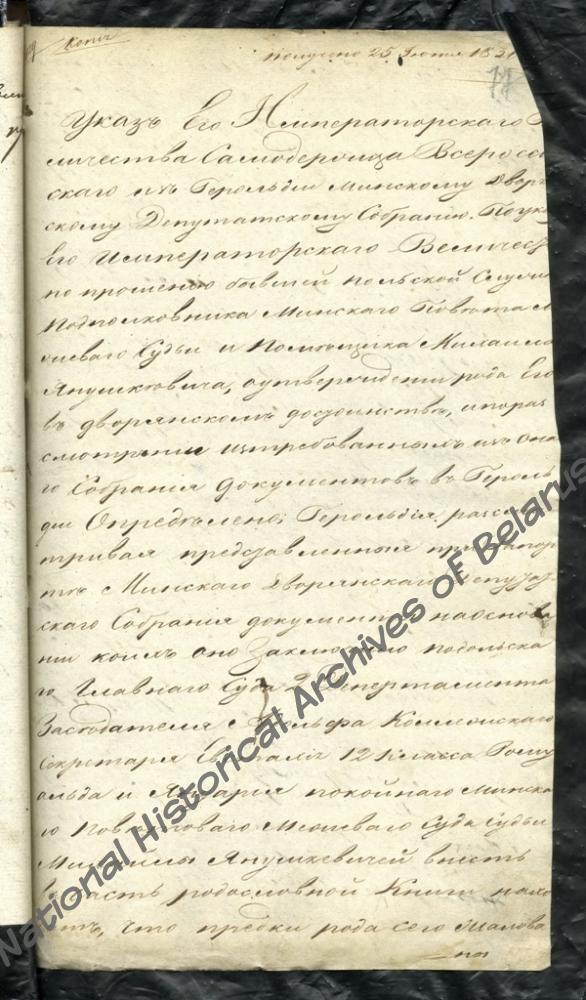 Копія
получено 25 Іюля 183
Указъ Его Императорскаго В
личества Самодержца Всеросс
скаго изъ Герольдіи Минскому Дворя
скому Депутатскому Собранію. По указ
Его Императорскаго Величес
по прошенію бывшей польской Служ
Подполковника Минскаго Повѣта М
жеваго Судьи и Помѣщика Михаила
Янушкевича, о утвержденіи рода Его
въ дворянскомъ достоинствѣ, и по раз
смотреніи изтребованныхъ изъ она
го Собранія документовъ въ Героль
діи Опредѣлено: Герольдія, разсма
тривая представленныя при рапор
тѣ Минскаго Дворянскаго Депутат
скаго Собранія документы на основа
ніи коихъ оно заключило Подольска
го Главнаго Суда 2 Департамента
Засѣдателя Адольфа Коллежскаго
Секретаря 12 Класса Рому
альда и Януарія покойнаго Минска
го Повѣтоваго Межеваго Суда Судьи
Михаила Янушкевичей внесть
часть родословной Книги нахо
дитъ, что предки рода сего Жалова
ны
National Historical Archives of Belarus